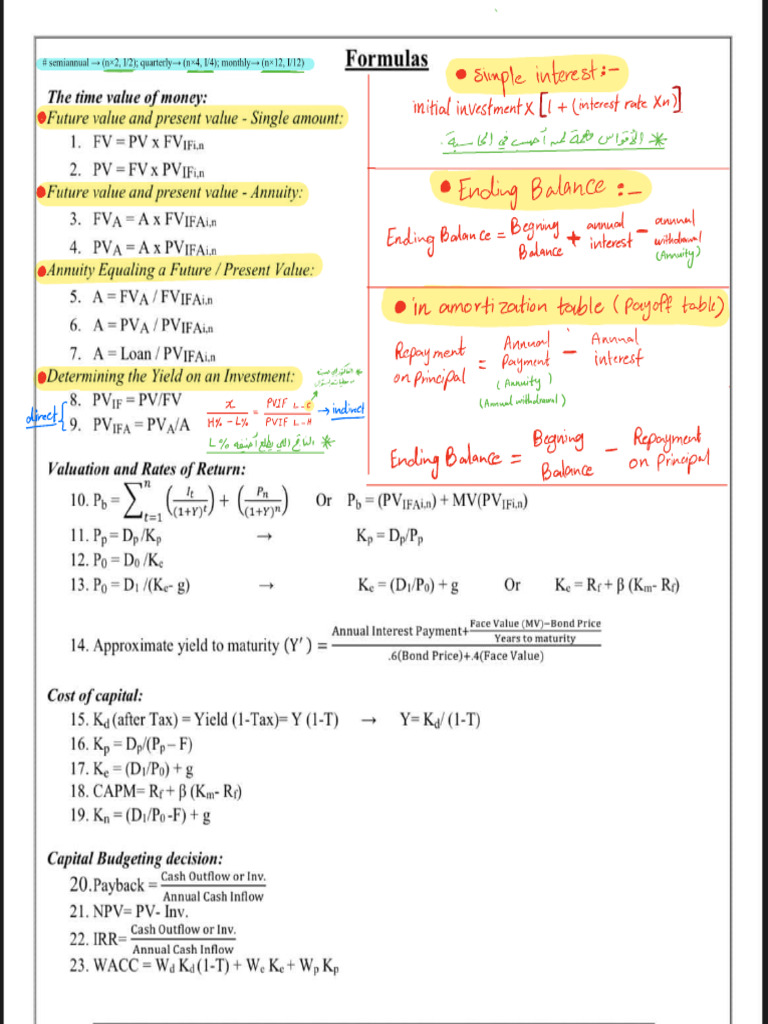 Formulas
# semiannual → (n×2, I/2); quarterly→ (n×4, I/4); monthly→ (n×12, I/12)
The time value of money:
Future value and present value - Single amount:
1. FV = PV x FV_IFi,n
2. PV = FV x PV_IFi,n
Future value and present value - Annuity:
3. FV_A = A x FV_IFAi,n
4. PV_A = A x PV_IFAi,n
Annuity Equaling a Future / Present Value:
5. A = FV_A / FV_IFAi,n
6. A = PV_A / PV_IFAi,n
7. A = Loan / PV_IFAi,n
Determining the Yield on an Investment:
direct
8. PV_IF = PV/FV
9. PV_IFA = PV_A/A
x / H% - L% = PVIF L - C / PVIF L - H → indirect
• Simple interest:-
initial investment X [1 + (interest rate Xn)]
• Ending Balance :-
Ending Balance = Begning Balance + annual interest - annual withdrawal (Annuity)
• in amortization table (payoff table)
Repayment on Principal = Annual Payment - Annual interest
(Annuity)
(Annual withdrawal)
Ending Balance = Begning Balance - Repayment on Principal
Valuation and Rates of Return:
10. P_b = ∑_{t=1}^{n} (I_t/(1+Y)^t) + (P_n/(1+Y)^n) Or P_b = (PV_IFAi,n) + MV(PV_IFi,n)
11. P_p = D_p/K_p → K_p = D_p/P_p
12. P_0 = D_0 /K_e
13. P_0 = D_1 /(K_e- g) → K_e = (D_1/P_0) + g Or K_e = R_f + β (K_m- R_f)
14. Approximate yield to maturity (Y′) = Annual Interest Payment+ Face Value (MV)−Bond Price / Years to maturity / .6(Bond Price)+.4(Face Value)
Cost of capital:
15. K_d (after Tax) = Yield (1-Tax)= Y (1-T) → Y= K_d/ (1-T)
16. K_p = D_p/(P_p – F)
17. K_e = (D_1/P_0) + g
18. CAPM= R_f + β (K_m- R_f)
19. K_n = (D_1/P_0 -F) + g
Capital Budgeting decision:
20. Payback = Cash Outflow or Inv. / Annual Cash Inflow
21. NPV= PV- Inv.
22. IRR= Cash Outflow or Inv. / Annual Cash Inflow
23. WACC = W_d K_d (1-T) + W_e K_e + W_p K_p